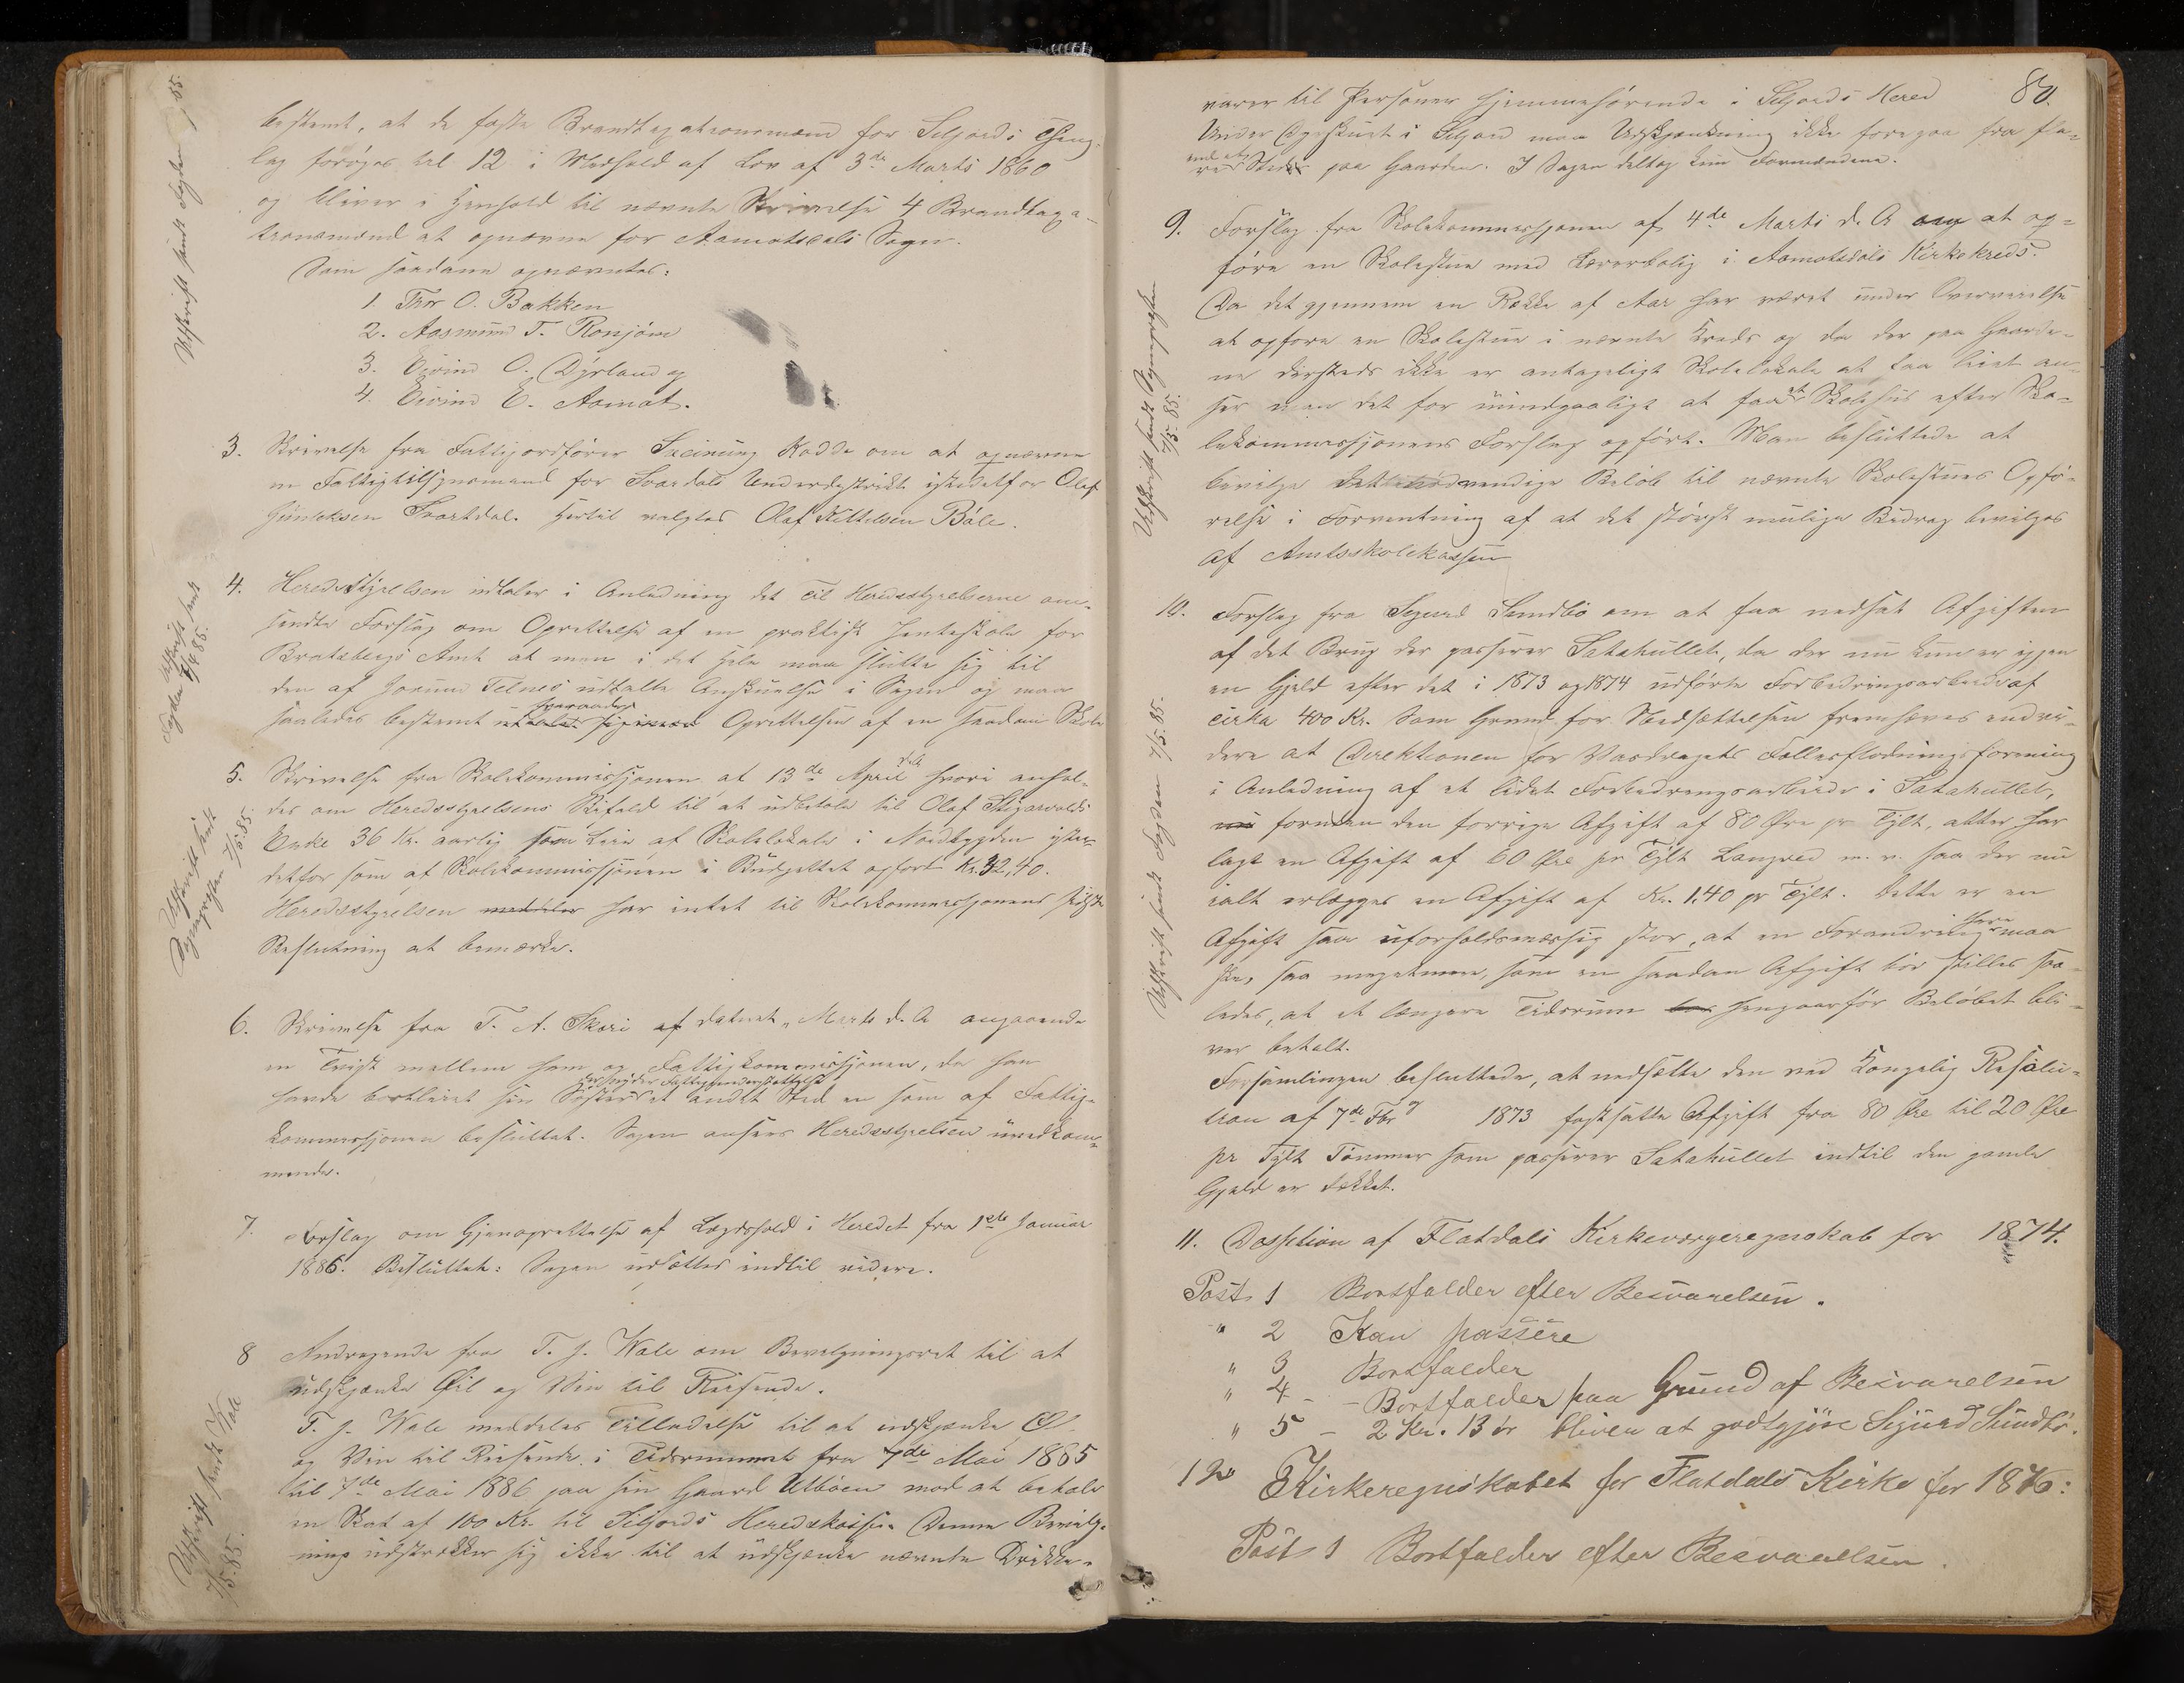 bestemt, at de faste Brandtagationsmænd for Seljords Thing-
lag forøges til 12 i Medhold af Lov af 3de Marts 1860
og bliver i Henhold til nævnte Skrivelse 4 Brandtaga-
tionsmænd at opnævne for Aamotsdals Sogn.
Som saadanne opnævntes:
1. Thor O. Bakken
2. Aasmund T. Ronjóm
3. Eivind O. Dyrland og
4 Eivind E. Aamot.
3. Skrivelse fra Fattigordfører Sveinung Kadde om at opnævne
en Fattigtilsynsmand for Svardals Underdistrikt istedetfor Olaf
Gunleksen Svartdal. Hertil valgtes Olaf Kittelsen Bóle.
4. Heredsstyrelsen udtaler i Anledning det til Heredsstyrelserne om-
sendte Forslag om Oprettelse af en praktisk Henteskole for
Bratsbergs Amt at man i det Hele maa slutte sig til
den af Jorund Telnes udtalte Anskuelse i Sagen og maa
fraraade
saaledes bestemt Oprettelsen af en saadan Skole
5. Skrivelse fra Skolekommissjonen af 13de April hvori anhol-
des om Heredsstyrelsens Bifald til at udbetale til Olaf Stigarvolds
Enke 36 Kr. aarlig som Leie af Skolelokale i Nordbygden iste-
detfor som af Skolekommissjonen i Budgettet opfört Kr. 42,40.
Heredsstyrelsen meddeler har intet til Skolekommissjonens sidste
Beslutning at bemærke.
6. Skrivelse fra T. N. Skori af dateret „ Marts d. A angaaende
en Tvist mellem ham og Fattigkommissjonen, da han
der nyder Fattigunderstøttelse
havde bortleiet sin Søster et andet Sted en som af Fattig-
kommissjonen besluttet. Sagen ansees Heredsstyrelsen uvedkom-
mende.
7. Forslag om Gjenoprettelse af Lægdshold i Heredet fra 1ste Januar
1886. Besluttet: Sagen udsættes indtil videre.
8 Andragende fra T. J. Wale om Bevilgningsret til at
udskjænke Øl og Vin til Reisende.
T. J. Wale meddeles Tilladelse til at udskjænke Øl
og Vin til Reisende i Tidsrummet fra 7de Mai 1885
til 7de Mai 1886 paa sin Gaard Utbøen mod at betale
en Skat af 100 Kr. til Seljords Heredskasse. Denne Bevilg-
ning udstrækker sig ikke til at udskjænke nævnte Drikke-
Udskrift sendt Fogden /85.
Udskrift sendt
Fogden 7/4 85.
Udskrift sendt
Sognepresten 7/5.85.
Udskrift sendt Wale
7/5.85.
80.
varer til Personer hjemmehørende i Seljords Hered
Under Dyrskuet i Seljord maa Udskjænkning ikke foregaa fra fle-
end et
re Steder paa Gaarden. I Sagen deltog kun Formændene.
9. Forslag fra Skolekommissjonen af 4de Marts d. A om at op-
føre en Skolestue med Lærerbolig i Aamotsdals Kirkekreds.
Da det gjennem en Række af Aar har været under Overveielse
at opføre en Skolestue i nævnte Kreds og da der paa Gaarde-
ne dersteds ikke er antageligt Skolelokale at faa leiet an-
ser man det for uundgaaligt at faa et Skolehus efter Sko-
lekommissjonens Forslag opført. Man besluttede at
bevilge det nødvendige Beløb til nævnte Skolestues Opfø-
relse i Forventning af at det størst mulige Bidrag bevilges
af Amtsskolekassen
10. Forslag fra Sigurd Sundbö om at faa nedsat Afgiften
af det Brug der passerer Satahullet, da der nu kun er igjen
en Gjeld efter det i 1873 og 1874 udførte Forbedringsarbeide af
cirka 400 Kr. Som Grund for Nedsættelsen fremhæves endvi-
dere at Direktionen for Vasdragets Fællesflødningsforening
i Anledning af et lidet Forbedringsarbeide i Satahullet,
foruden den forrige Afgift af 80 Øre pr Tylt, atter har
lagt en Afgift af 60 Øre pr Tylt Langved m. v. saa der nu
ialt erlægges en Afgift af Kr. 1.40 pr Tylt. Dette er en
heri
Afgift saa uforholdsmæssig stor, at en Forandring maa
ske, saa meget mere, som en saadan Afgift bör stilles saa-
ledes, at et længere Tidsrum hengaar før Beløbet bli-
ver betalt.
Forsamlingen besluttede, at nedsætte den ved Kongelig Resolu-
tion af 7de Fbr 1873 fastsatte Afgift fra 80 Øre til 20 Øre
pr Tylt Tömmer som passerer Satahullet indtil den gamle
Gjeld er dækket.
11. Desition af Flatdals Kirkeværgeregnskab for 1874.
Post 1 Bortfalder efter Besvarelsen.
" 2 Kan passere
" 3 Bortfalder
" 4 - - Bortfalder paa Grund af Besvarelsen
" 5 - 2 Kr. 13 ör bliver at godtgjöre Sigurd Sundbö.
12 Kirkeregnskabet for Flatdals Kirke for 1876:
Post 1 Bortfalder efter Besvarelsen.
Udskrift sendt Sognepresten
7/5.85.
Udskrift sendt Fogden 7/5.85.